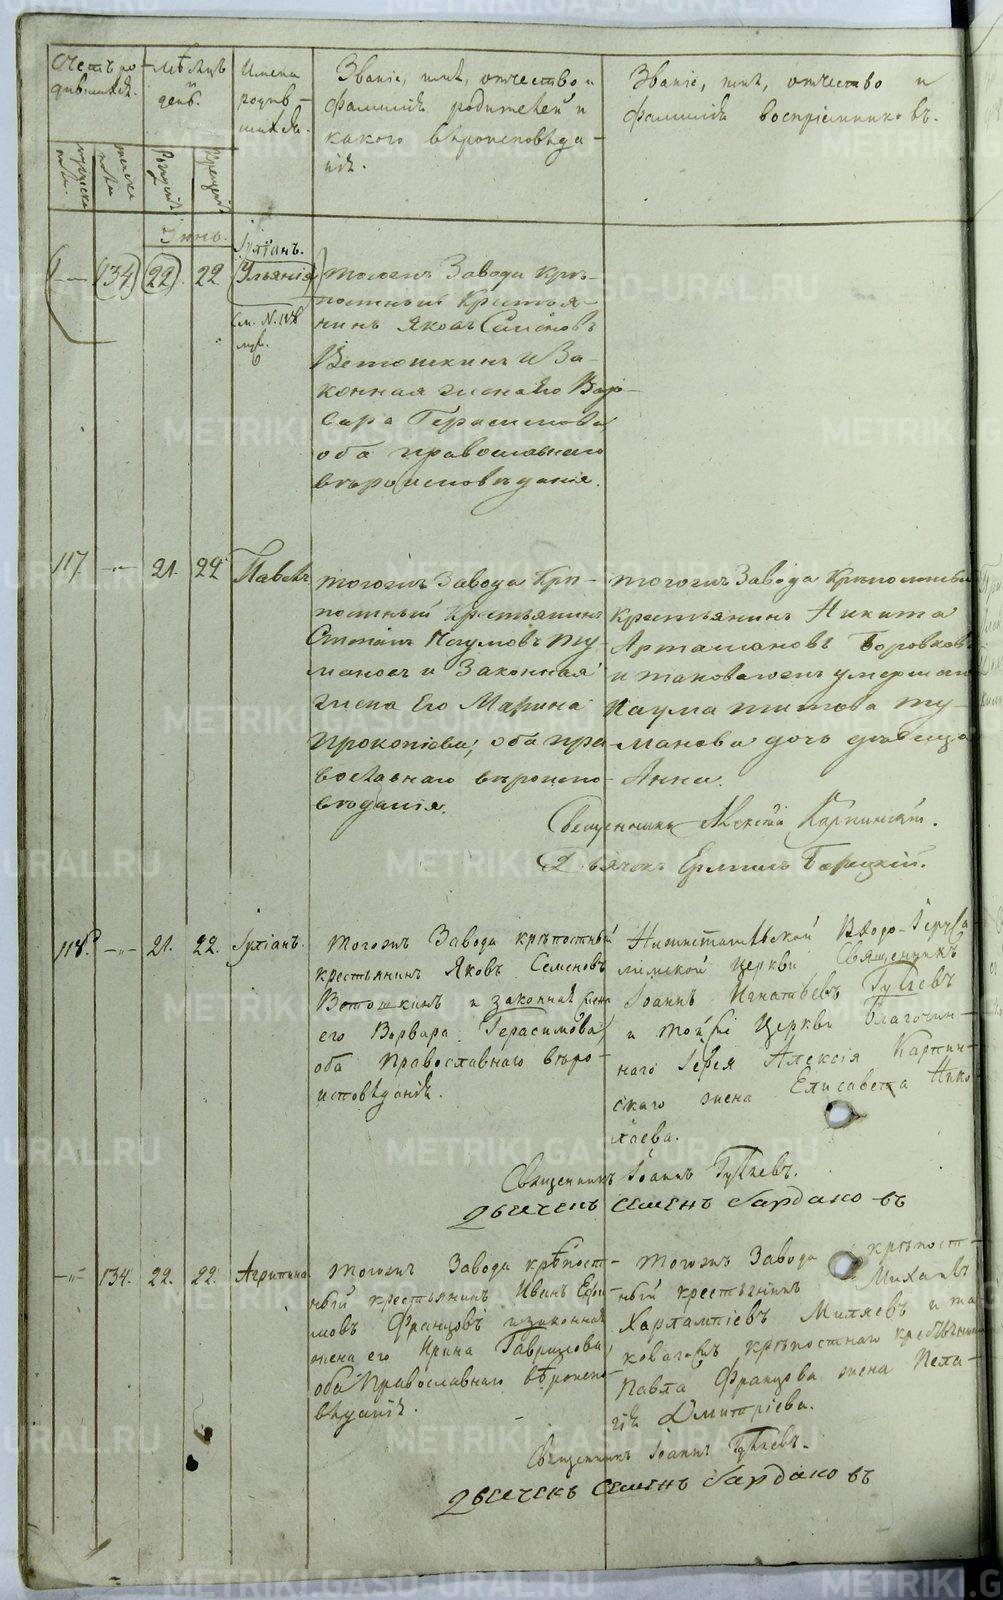 Счетъ родившихся.
Мѣсяцъ и день.
Имена родившихся.
Званіе, имя, отчество и
фамилія родителей и
какого вѣроисповѣда-
нія.
Званіе, имя, отчество и
фамилія воспріемниковъ.
мужеска пола.
женска пола
Рожденія
Крещенія
Іюнь.
Іуліанъ.
134 22 22 Ульянія
См. N. 118
муж.
тогожъ Завода крѣ-
постный Крестья-
нинъ Яковъ Семеновъ
Ветошкинъ и За-
конная жена Его Вар-
вара Герасимова
оба православнаго
вѣроисповѣданія.
117. 21. 22 Павелъ
тогожъ Завода Крѣ-
постный Крестьянинъ
Степанъ Наумовъ Ту-
мановъ и Законная
жена Его Марина
Прокопіева, оба пра-
вославнаго вѣроиспо-
вѣданія.
тогожъ Завода Крѣпостный
крестьянинъ Никита
Артамоновъ Боровковъ
и таковагожъ умершаго
Наума Титова Ту-
манова дочь девица
Анна.
Священникъ Алексѣй Карпинскій.
Дьячекъ Ермилъ Борецкій.
118. 21. 22. Іуліанъ.
тогожъ Завода крѣпостный
крестьянинъ Яковъ Семеновъ
Ветошкинъ и законная жена
его Варвара Герасимова,
оба Православнаго вѣро-
исповѣданія.
Нижнетагильской Входо-Іеруса
лимской Церкви Священникъ
Іоаннъ Игнатьевъ Гуляевъ
и той же Церкви Благочин-
наго Іерея Алексія Карпин-
скаго жена Елисавета Нико
лаева.
Священникъ Іоаннъ Гуляевъ.
Дьячекъ Семенъ Сардаковъ
134. 22. 22. Агрипина
тогожъ Завода крѣпост-
ный крестьянинъ Иванъ Ефи
мовъ Францовъ и законная
жена его Ирина Гаврилова,
оба Православнаго вѣроиспо
вѣданія.
тогожъ Завода крѣпост-
ный крестьянинъ Михаилъ
Харлампіевъ Миляевъ и та
ковагожъ крѣпостнаго крестьянина
Павла Францова жена Пела-
гія Димитріева.
Священникъ Іоаннъ Гуляевъ.
Дьячекъ Семенъ Сардаковъ
METRIKI.GASO-URAL.RU